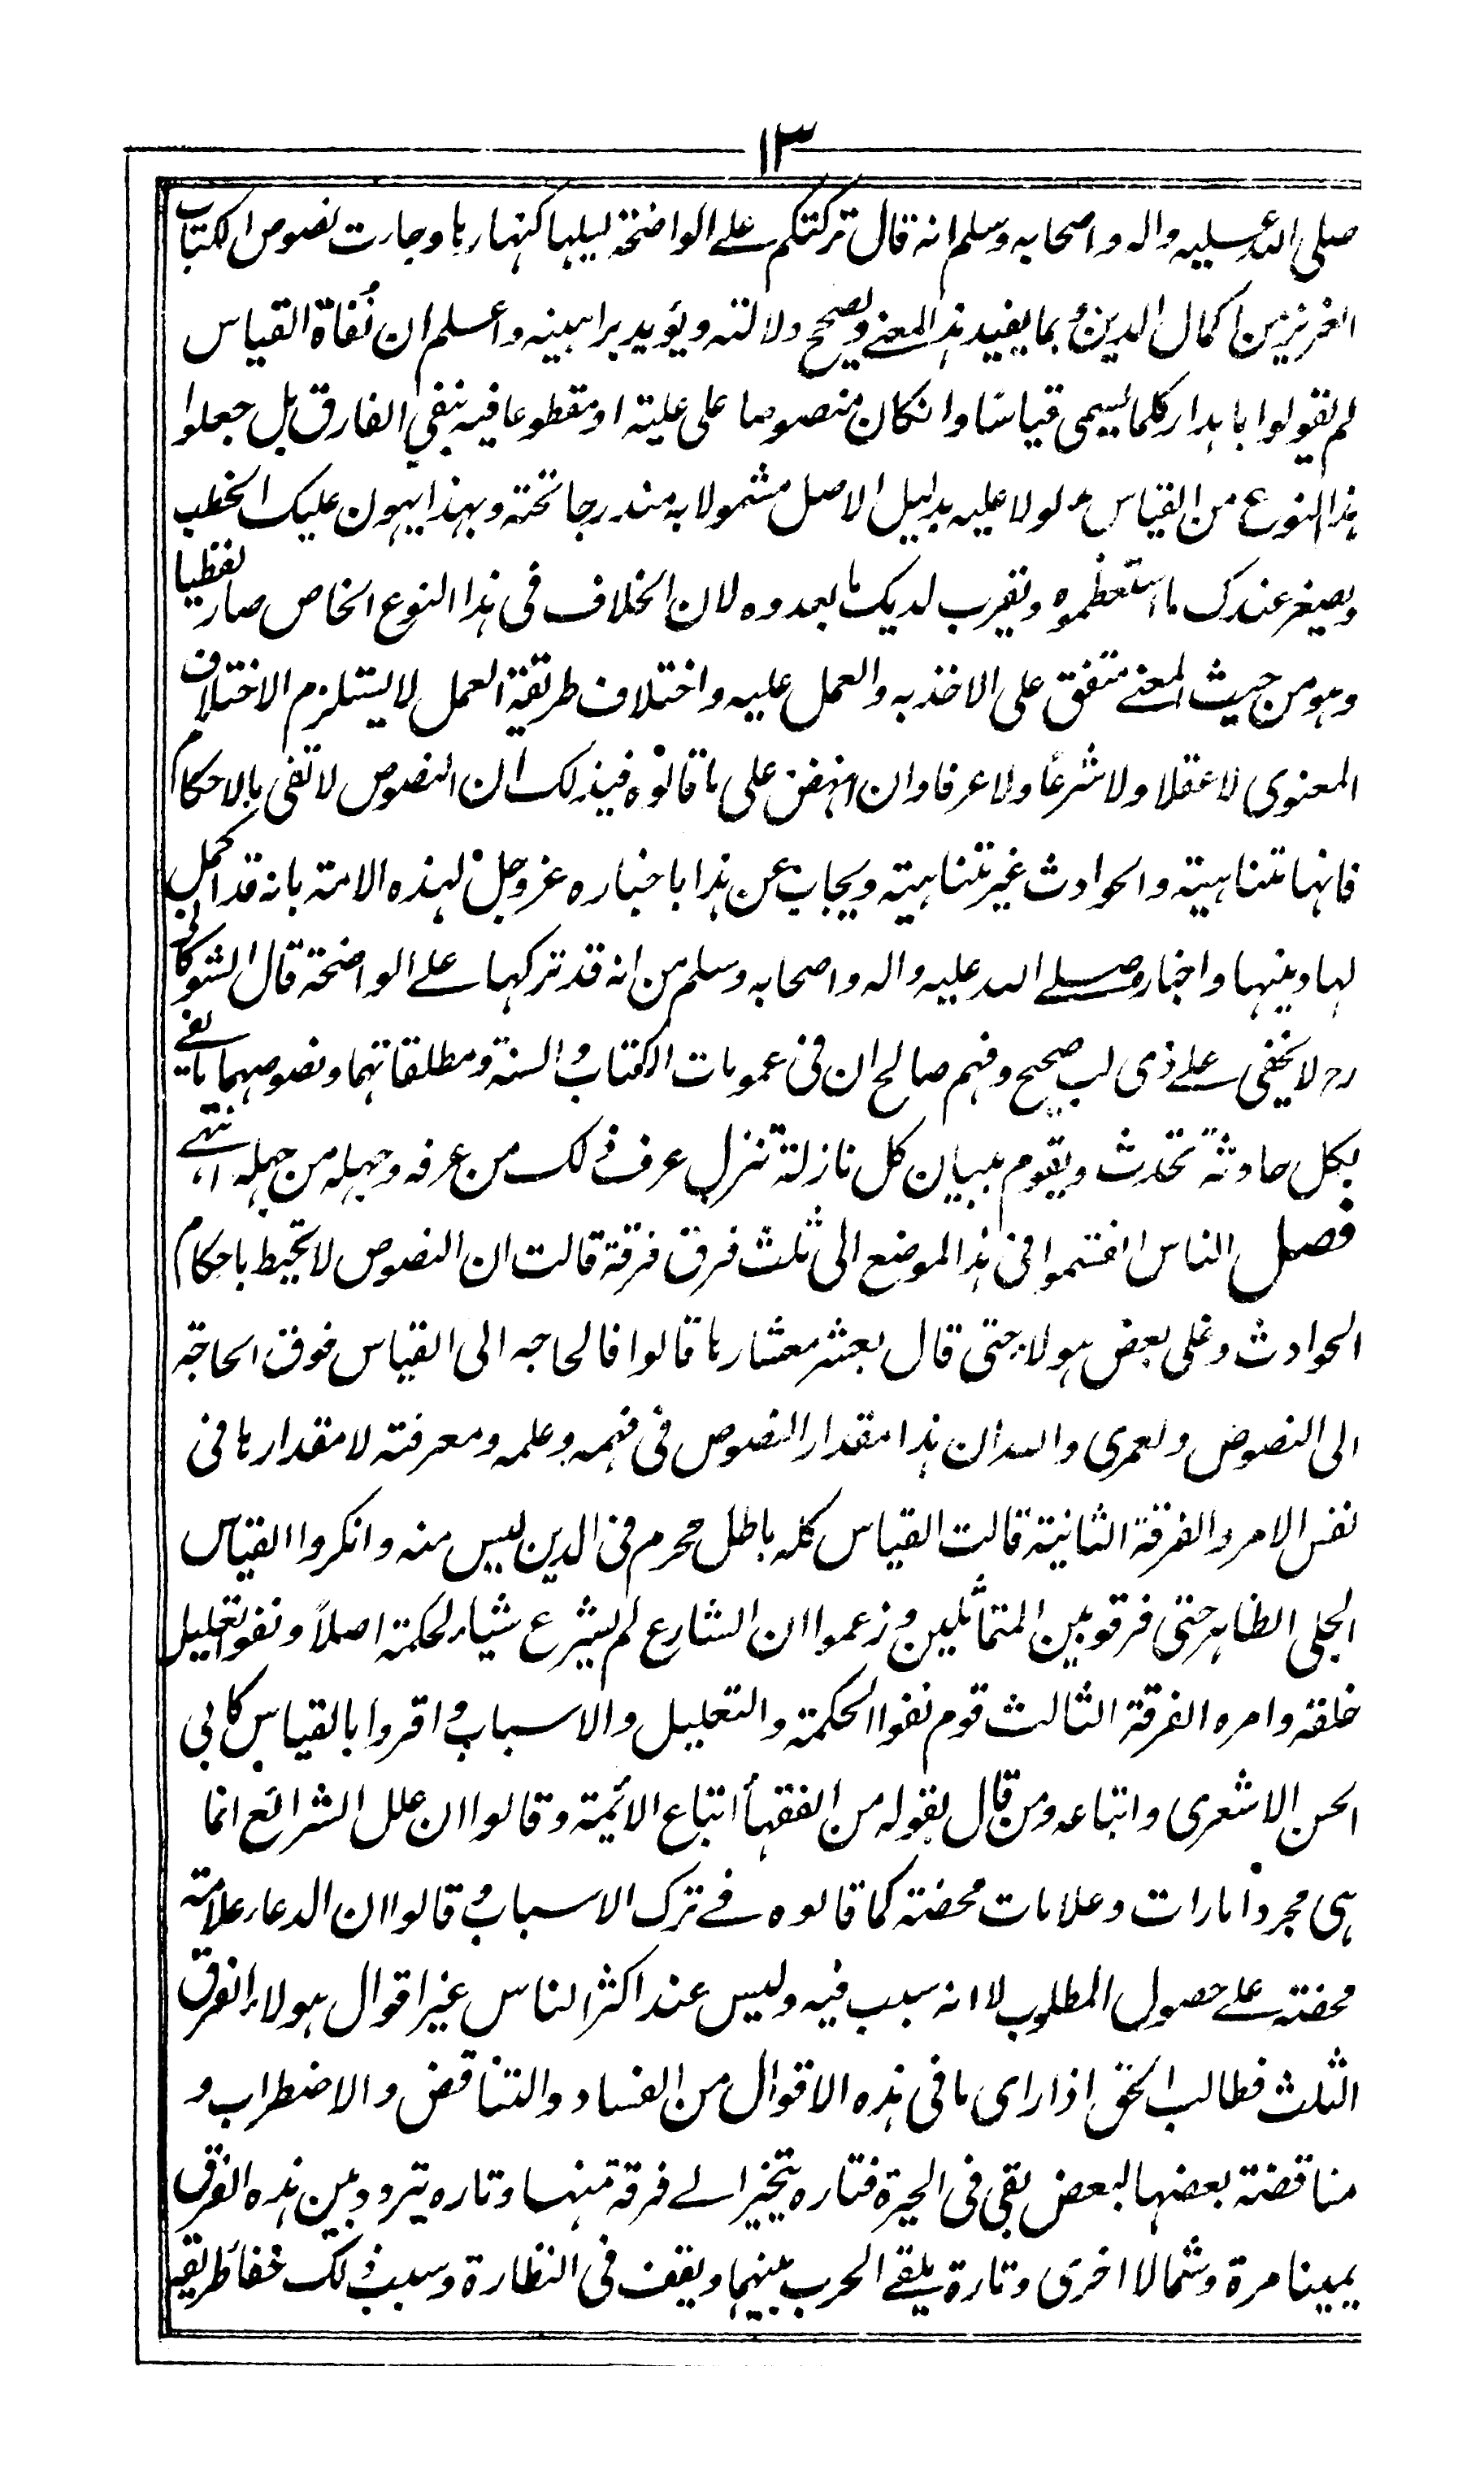 ١٣
صلى الله عليه واله واصحابه وسلم انه قال تركتكم على الواضحة ليلها كنهارها وجاءت نصوص الكتاب
العزيز من اكمال الدين وبما يفيد هذا المعنى ويصحح دلالته ويؤيد براهينه واعلم ان نُفاة القياس
لم يقولوا باهدار كلما يسمى قياسًا وانكان منصوصا على علته او مقطوعا فيه بنفي الفارق بل جعلوا
هذا النوع من القياس مدلولا عليه بدليل الاصل مشمولا به مندرجا تحته وبهذا يهون عليك الخطب
ويصغر عندك ما استعظموه ويقرب لديك ما بعدوه لان الخلاف في هذا النوع الخاص صار لفظيا
وهو من حيث المعنى متفق على الاخذ به والعمل عليه واختلاف طريقة العمل لا يستلزم الاختلاف
المعنوي لا عقلا ولا شرعًا ولا عرفا وان انهض على ما قالوه في ذلك ان النصوص لا تفي بالاحكام
فانها متناهية والحوادث غير متناهية ويجاب عن هذا باخباره عز وجل لهذه الامة بانه قد اكمل
لها دينها واخباره صلى الله عليه واله واصحابه وسلم من انه قد تركها على الواضحة قال الشوكاني
رح لا يخفى على ذي لب صحيح وفهم صالح ان في عمومات الكتاب والسنة ومطلقاتهما ونصوصهما ما يفي
بكل حادثة تحدث ويقوم ببيان كل نازلة تنزل عرف ذلك من عرفه وجهله من جهله انتهى
فصل الناس انقسموا في هذا الموضع الى ثلث فرق فرقة قالت ان النصوص لا تحيط باحكام
الحوادث وغلى بعض هولاء حتى قال بعشر معشارها قالوا فالحاجه الى القياس فوق الحاجة
الى النصوص ولعمري والله ان هذا مقدار النصوص في فهمه وعلمه ومعرفته لا مقدارها في
نفس الامر والفرقة الثانية قالت القياس كله باطل محرم في الدين ليس منه وانكروا القياس
الجلى الظاهر حتى فرقوا بين المتماثلين وزعموا ان الشارع لم يشرع شيئا لحكمة اصلاً ونفوا تعليل
خلقه وامره الفرقة الثالث قوم نفوا الحكمة والتعليل والاسباب واقروا بالقياس كابي
الحسن الاشعري واتباعه ومن قال بقوله من الفقهأ اتباع الائمة وقالوا ان علل الشرائع انما
هي مجرد امارات وعلامات محضة كما قالوه في ترك الاسباب وقالوا ان الدعاء علامة
محضة على حصول المطلوب لا انه سبب فيه وليس عند اكثر الناس غير اقوال هولاء الفرق
الثلث فطالب الحق اذا راى ما في هذه الاقوال من الفساد والتناقض والاضطراب و
مناقضة بعضها لبعض بقي في الحيرة فتاره يتحيز الى فرقة منها وتاره يتردد بين هذه الفرق
يمينا مرة وشمالا اخرى وتارة يلقى الحرب بينهما ويقف في النظارة وسبب ذلك خفاء طريقة